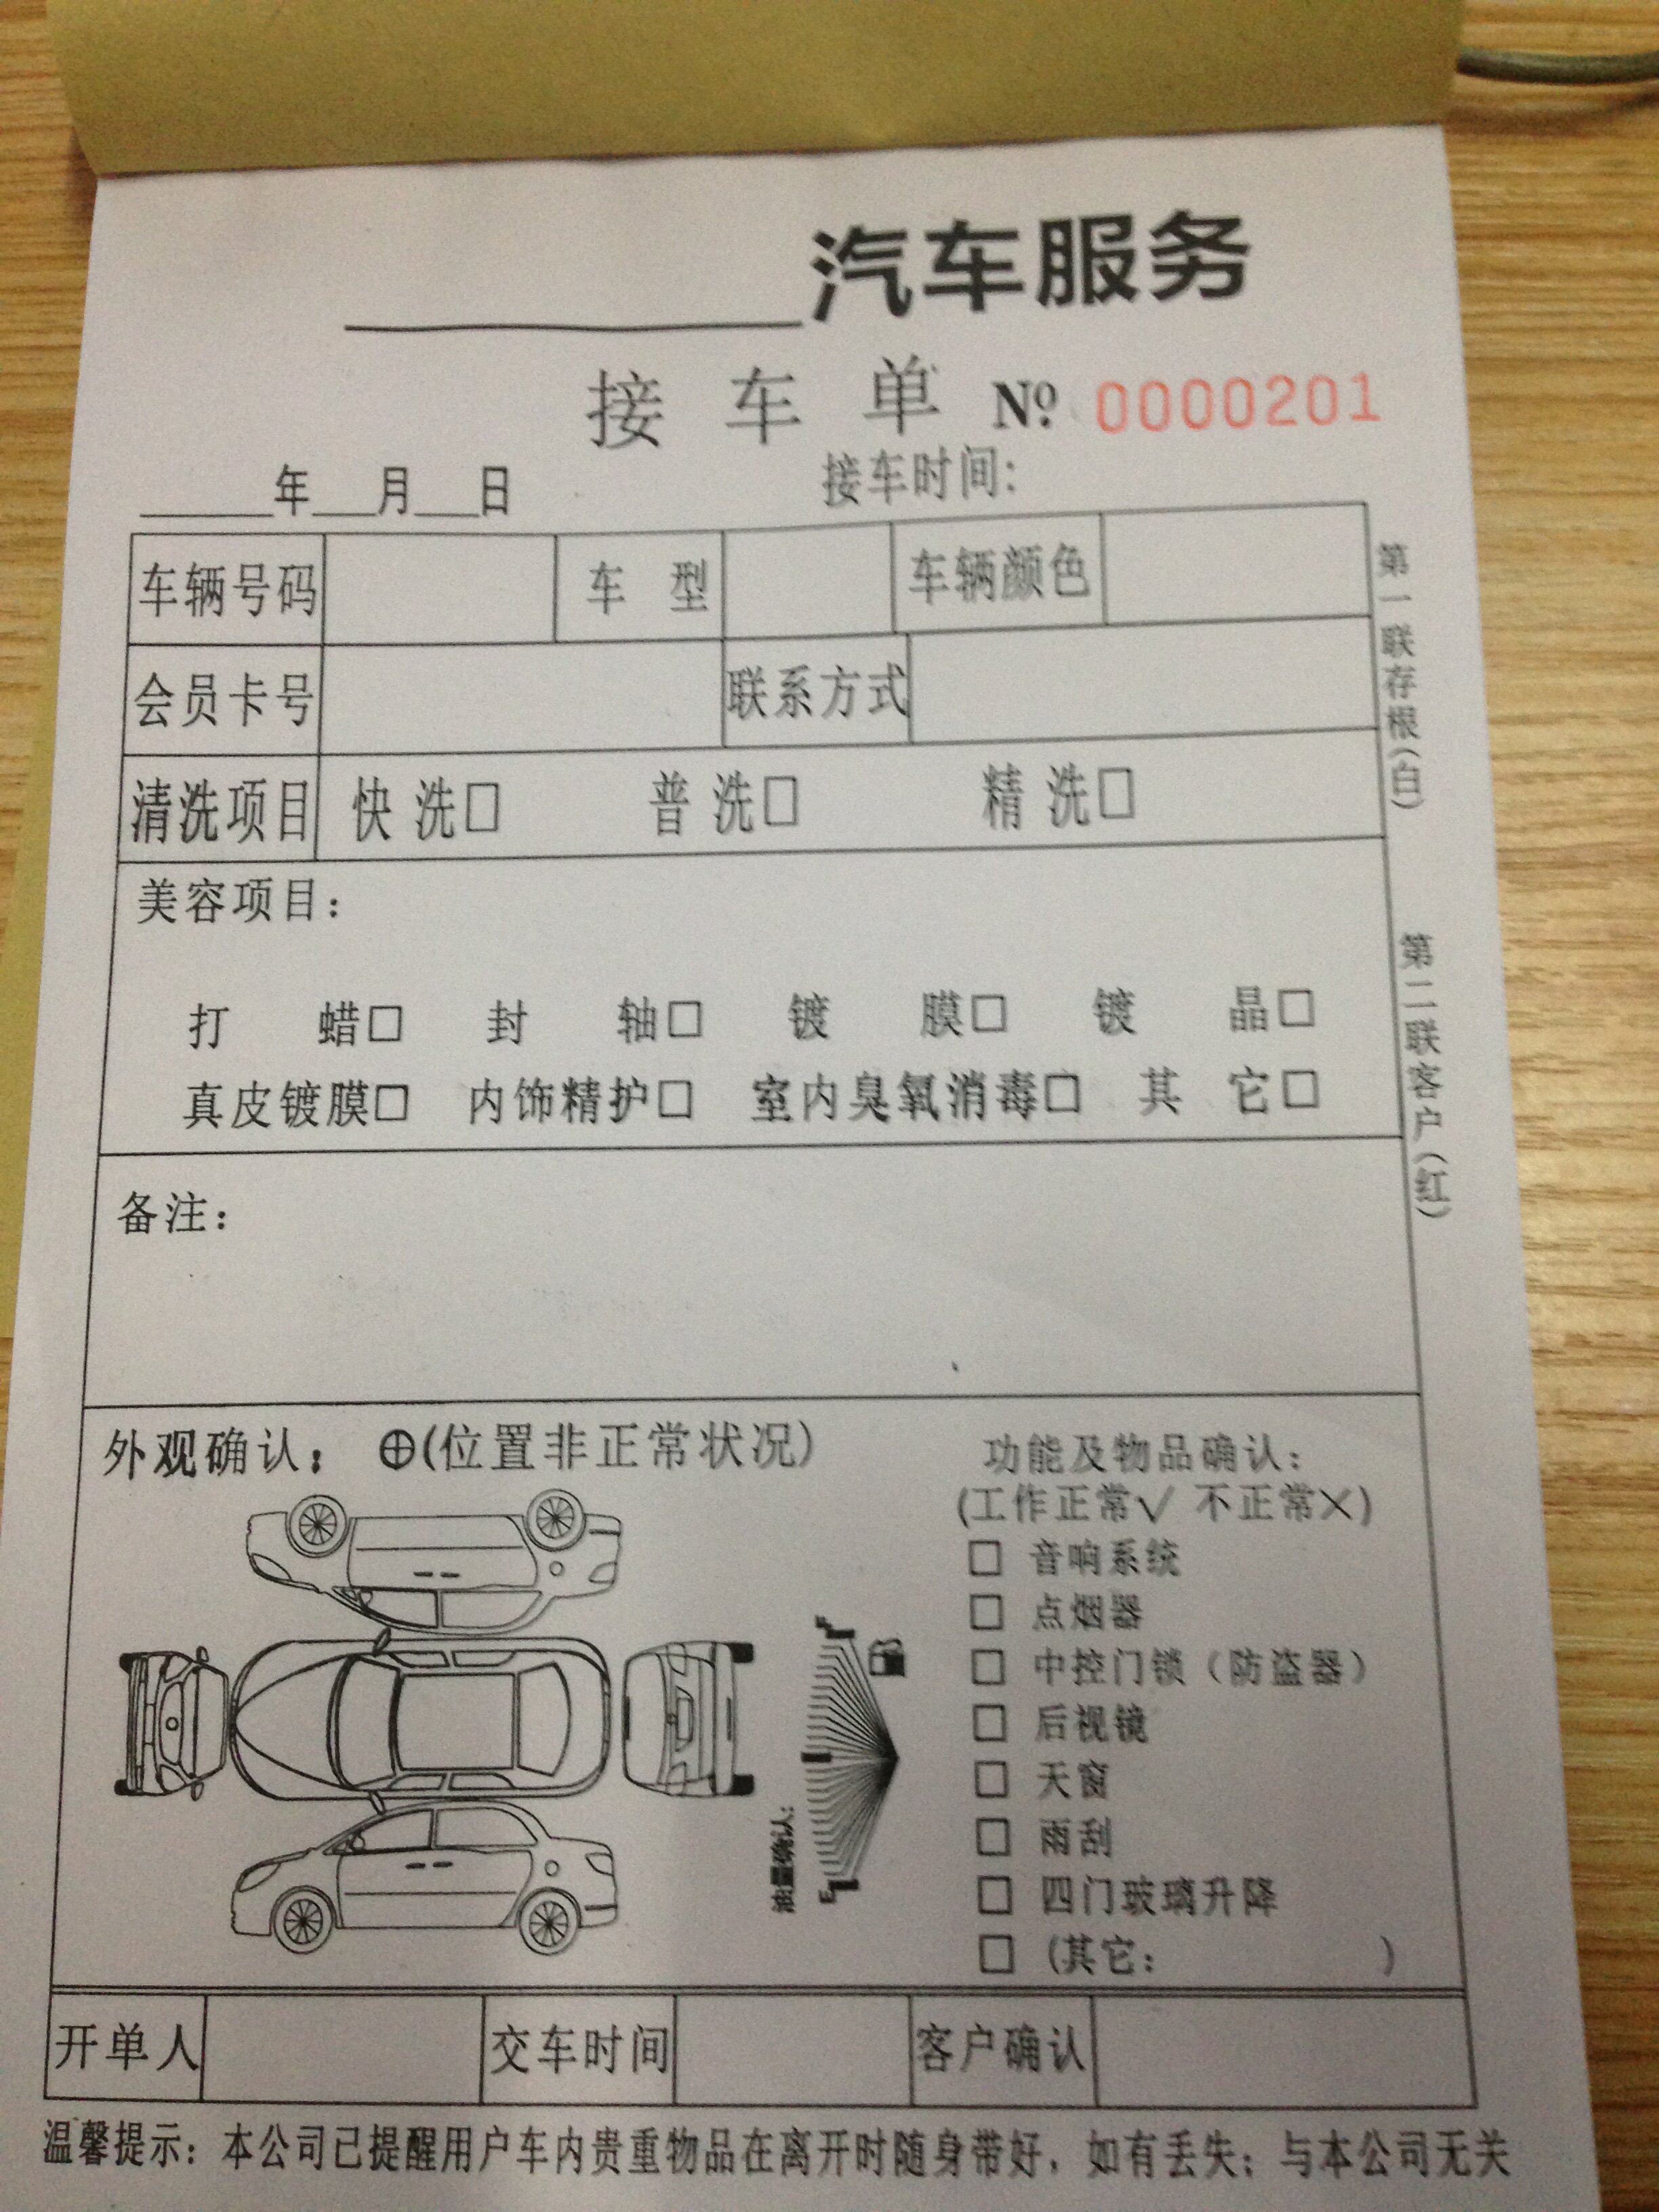 汽车服务
接车单 № 0000201
年 月 日 接车时间:
车辆号码 车型 车辆颜色
会员卡号 联系方式
清洗项目 快洗□ 普洗□ 精洗□
美容项目:
打蜡□ 封轴□ 镀膜□ 镀晶□
真皮镀膜□ 内饰精护□ 室内臭氧消毒□ 其它□
备注:
外观确认: ⊕(位置非正常状况)
功能及物品确认:
(工作正常√ 不正常×)
□ 音响系统
□ 点烟器
□ 中控门锁（防盗器）
□ 后视镜
□ 天窗
□ 雨刮
□ 四门玻璃升降
□ (其它: )
油量确认:
F
E
开单人 交车时间 客户确认
温馨提示: 本公司已提醒用户车内贵重物品在离开时随身带好，如有丢失；与本公司无关
第一联存根(白)
第二联客户(红)